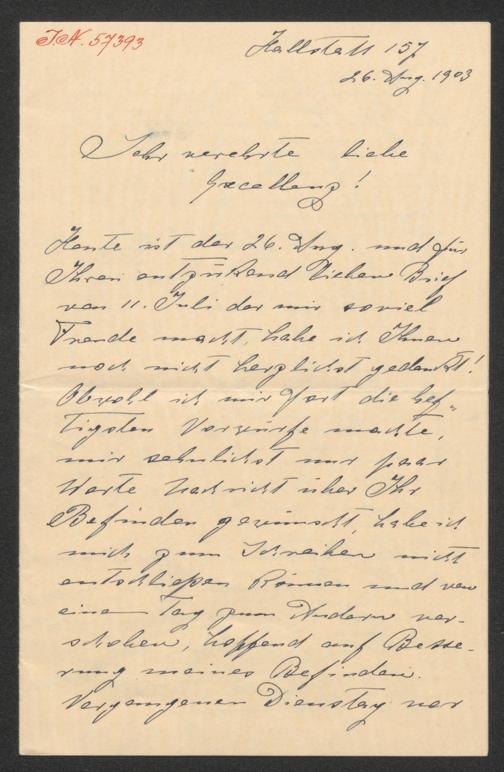 J.N. 57393
Hallstatt 157
26. Aug. 1903
Sehr verehrte liebe
Excellenz!
Heute ist der 26. Aug. und für
Ihren entzükend lieben Brief
von 11. Juli der mir soviel
Freude macht, habe ich Ihnen
noch nicht herzlichst gedankt!
Obwohl ich mir fort die hef-
tigsten Vorwürfe machte,
mir sehnlichst nur paar
Worte Nachricht über Ihr
Befinden gewünscht, habe ich
mich zum Schreiben nicht
entschließen können und von
einen Tag zum Andern ver-
schoben, hoffend auf Besse-
rung meines Befinden.
Vergangenen Dienstag vor